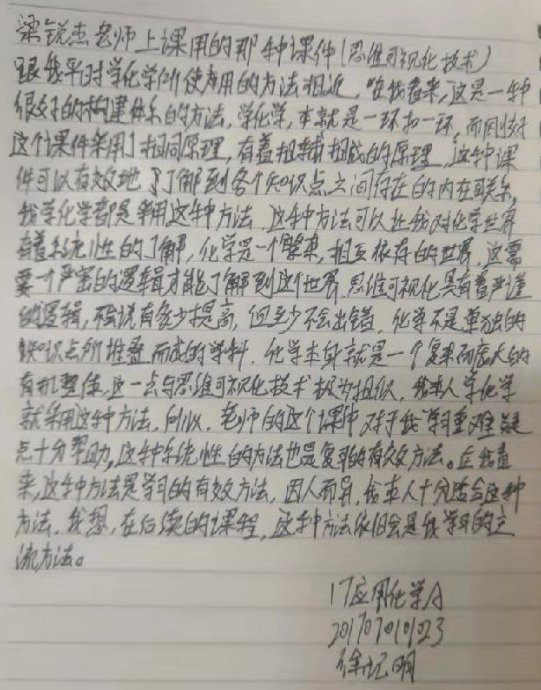 梁锐杰老师上课用的那种课件(思维可视化技术)
跟我平时学化学所使用的方法相近。在我看来,这是一种
很好的构建体系的方法,学化学,本就是一环扣一环,而刚好
这个课件采用了相同原理,有着相辅相成的原理,这种课
件可以有效地了解到各个知识点之间存在的内在联系,
我学化学都是采用这种方法,这种方法可以让我对化学世界
有着系统性的了解,化学是一个紧密,相互依存的世界,这需
要一个严密的逻辑才能了解到这个世界,思维可视化具有着严谨
的逻辑,不说有多少提高,但至少不会出错,化学不是单独的
知识点所堆叠而成的学科,化学本身就是一个复杂而庞大的
有机整体,这一点与思维可视化技术极为相似,我本人学化学
就采用这种方法,所以,老师的这个课件对于我学习重难疑
点十分帮助,这种系统性的方法也是复习的有效方法。在我看
来,这种方法是学习的有效方法,因人而异,我本人十分适合这种
方法,我想,在后续的课程,这种方法依旧会是我学习的主
流方法。
17应用化学A
201707010123
徐记明